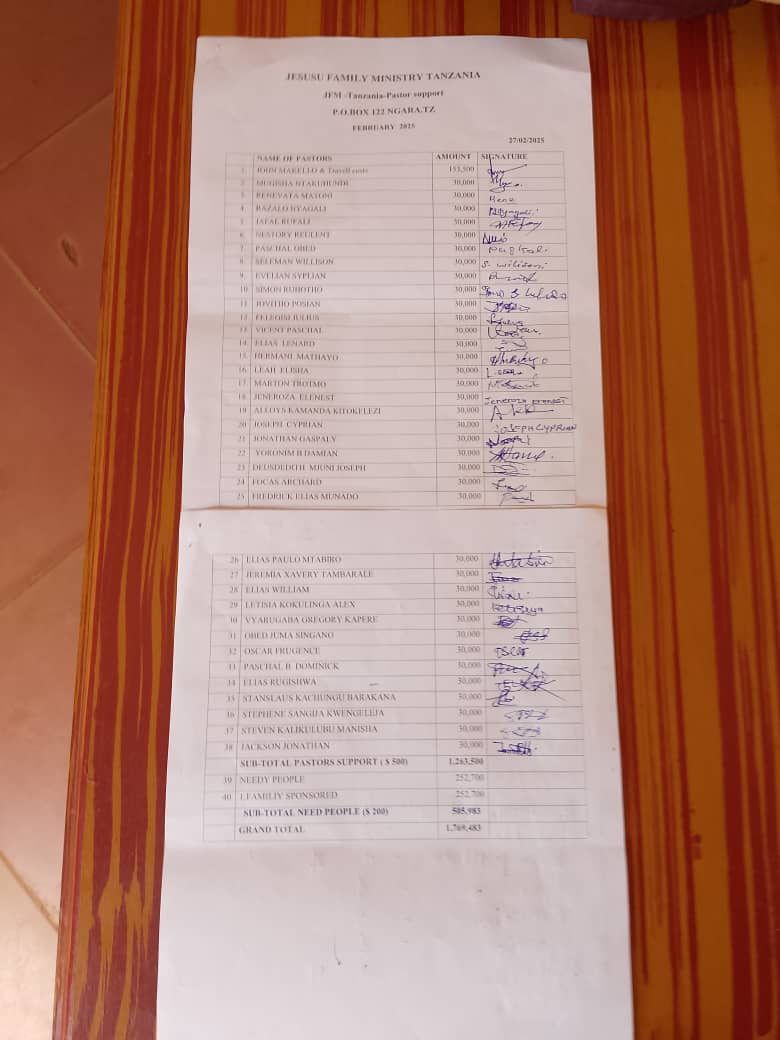 JESUSU FAMILY MINISTRY TANZANIA
JFM -Tanzania-Pastor support
P.O.BOX 122 NGARA,TZ
FEBRUARY 2025
27/02/2025
NAME OF PASTORS AMOUNT SIGNATURE
1 JOHN MAKELLO & Travell costs 153,500
2 MUGISHA NTAKUHUNDI 30,000
3 RENEVATA MATONI 30,000 Rene
4 RAZALO NYAGALI 30,000
5 JAFAL RUPALI 30,000
6 NESTORY REULENT 30,000
7 PASCHAL OBED 30,000
8 SELEMAN WILLISON 30,000 S. wilisoni
9 EVELIAN SYPLIAN 30,000
10 SIMON RUHOTHO 30,000
11 JOVITHO POSIAN 30,000
12 FELEGISI JULIUS 30,000
13 VICENT PASCHAL 30,000
14 ELIAS LENARD 30,000
15 HERMANI MATHAYO 30,000
16 LEAH ELISHA 30,000
17 MARTON TROTMO 30,000
18 JENEROZA ELENEST 30,000 Jeneroza
19 ALLOYS KAMANDA KITOKELEZI 30,000
20 JOSEPH CYPRIAN 30,000 JOSEPH CYPRIAN
21 JONATHAN GASPALY 30,000
22 YORONIM B DAMIAN 30,000
23 DEUSDEDITH MJUNI JOSEPH 30,000
24 FOCAS ARCHARD 30,000
25 FREDRICK ELIAS MUNADO 30,000
26 ELIAS PAULO MTABIRO 30,000
27 JEREMIA XAVERY TAMBARALE 30,000
28 ELIAS WILLIAM 30,000
29 LETISIA KOKULINGA ALEX 30,000
30 VYARUGABA GREGORY KAPERE 30,000
31 OBED JUMA SINGANO 30,000
32 OSCAR FRUGENCE 30,000 OSCAR
33 PASCHAL B. DOMINICK 30,000
34 ELIAS RUGISHWA 30,000
35 STANSLAUS KACHUNGU BARAKANA 30,000
36 STEPHENE SANGIJA KWENGELEJA 30,000
37 STEVEN KALIKULUBU MANISHA 30,000
38 JACKSON JONATHAN 30,000
SUB-TOTAL PASTORS SUPPORT ( $ 500) 1.263,500
39 NEEDY PEOPLE 252,700
40 1.FAMILIY SPONSORED 252,700
SUB-TOTAL NEED PEOPLE ($ 200) 505,983
GRAND TOTAL 1,769,483